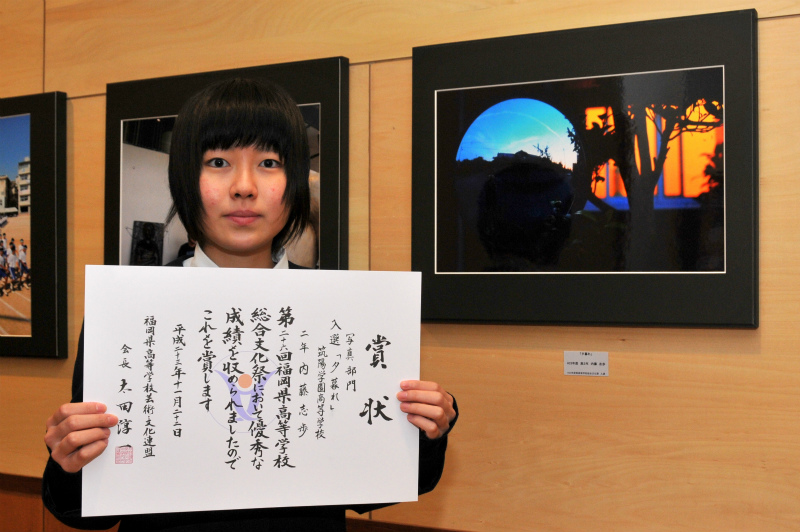 賞状
〔写真部門〕
入選「夕暮れ」
筑陽学園高等学校
二年 内藤志歩
第二十六回福岡県高等学校
総合文化祭において優秀な
成績を収められましたので
これを賞します
平成二十三年十一月二十二日
福岡県高等学校芸術文化連盟
会長 太田淳一